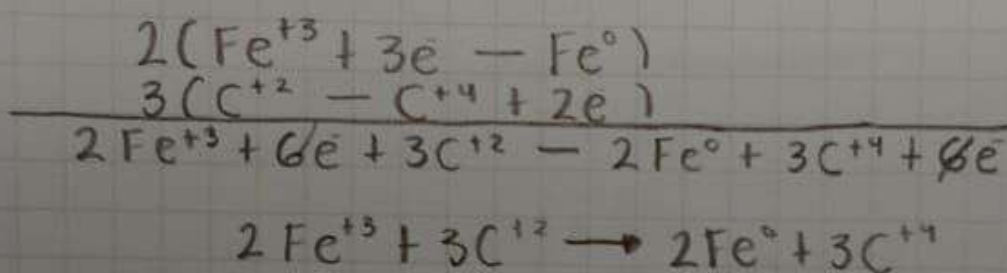 2(Fe⁺³ + 3e − Fe⁰)
3(C⁺² − C⁺⁴ + 2e)
2Fe⁺³ + 6e + 3C⁺² − 2Fe⁰ + 3C⁺⁴ + 6e
2Fe⁺³ + 3C⁺² → 2Fe⁰ + 3C⁺⁴